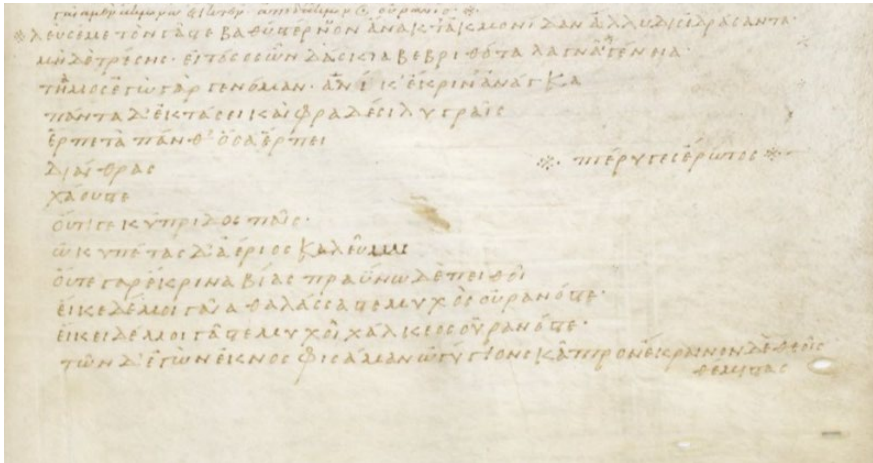 λεῦσέ με τὸν γᾶς τε βαθυστέρνον ἄνακτ ἀκμονίδαν ἄλλυδις ἑδράσαντα·
μὴδὲ τρέσῃς· εἰ τόσος ὢν δάσκια βεβριθότα λάγνᾳ γένεια·
τῆμος ἐγὼ γὰρ γενόμαν· ἁνίκ' ἔκριν' ἀνάγκα
πάντα δ' ἐκτάσει καὶ φραδέσι λυγραῖς
ἑρπετὰ πάνθ' ὅσα ἕρπει
δι' αἴθρας
※ πτέρυγες ἔρωτος ※
χάους τε
οὔτι γε κύπριδος παῖς·
ὠκυπέτας δ' ἀέριος καλεῦμαι
οὔτε γὰρ ἔκρινα βίας πραΰνω δὲ πειθοῖ
εἶκε δέ μοι γαῖα θαλάσσα τε μυχὸς οὐρανός τε·
εἶκε δέ μοι γᾶ τε μυχοὶ χάλκεος οὐρανός τε·
τῶν δ' ἐγὼν ἐκνοσφισάμαν ὠγύγιον σκᾶπτρον ἔκραινον δὲ θεοῖς
θέμιστας